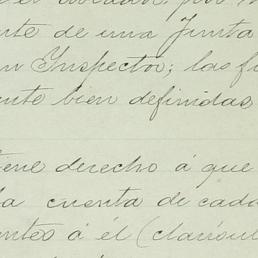 nte de una Junta
n Inspector; las f
ente bien definidas
iene derecho á que
la cuenta de cada
ntes á él (cláusul